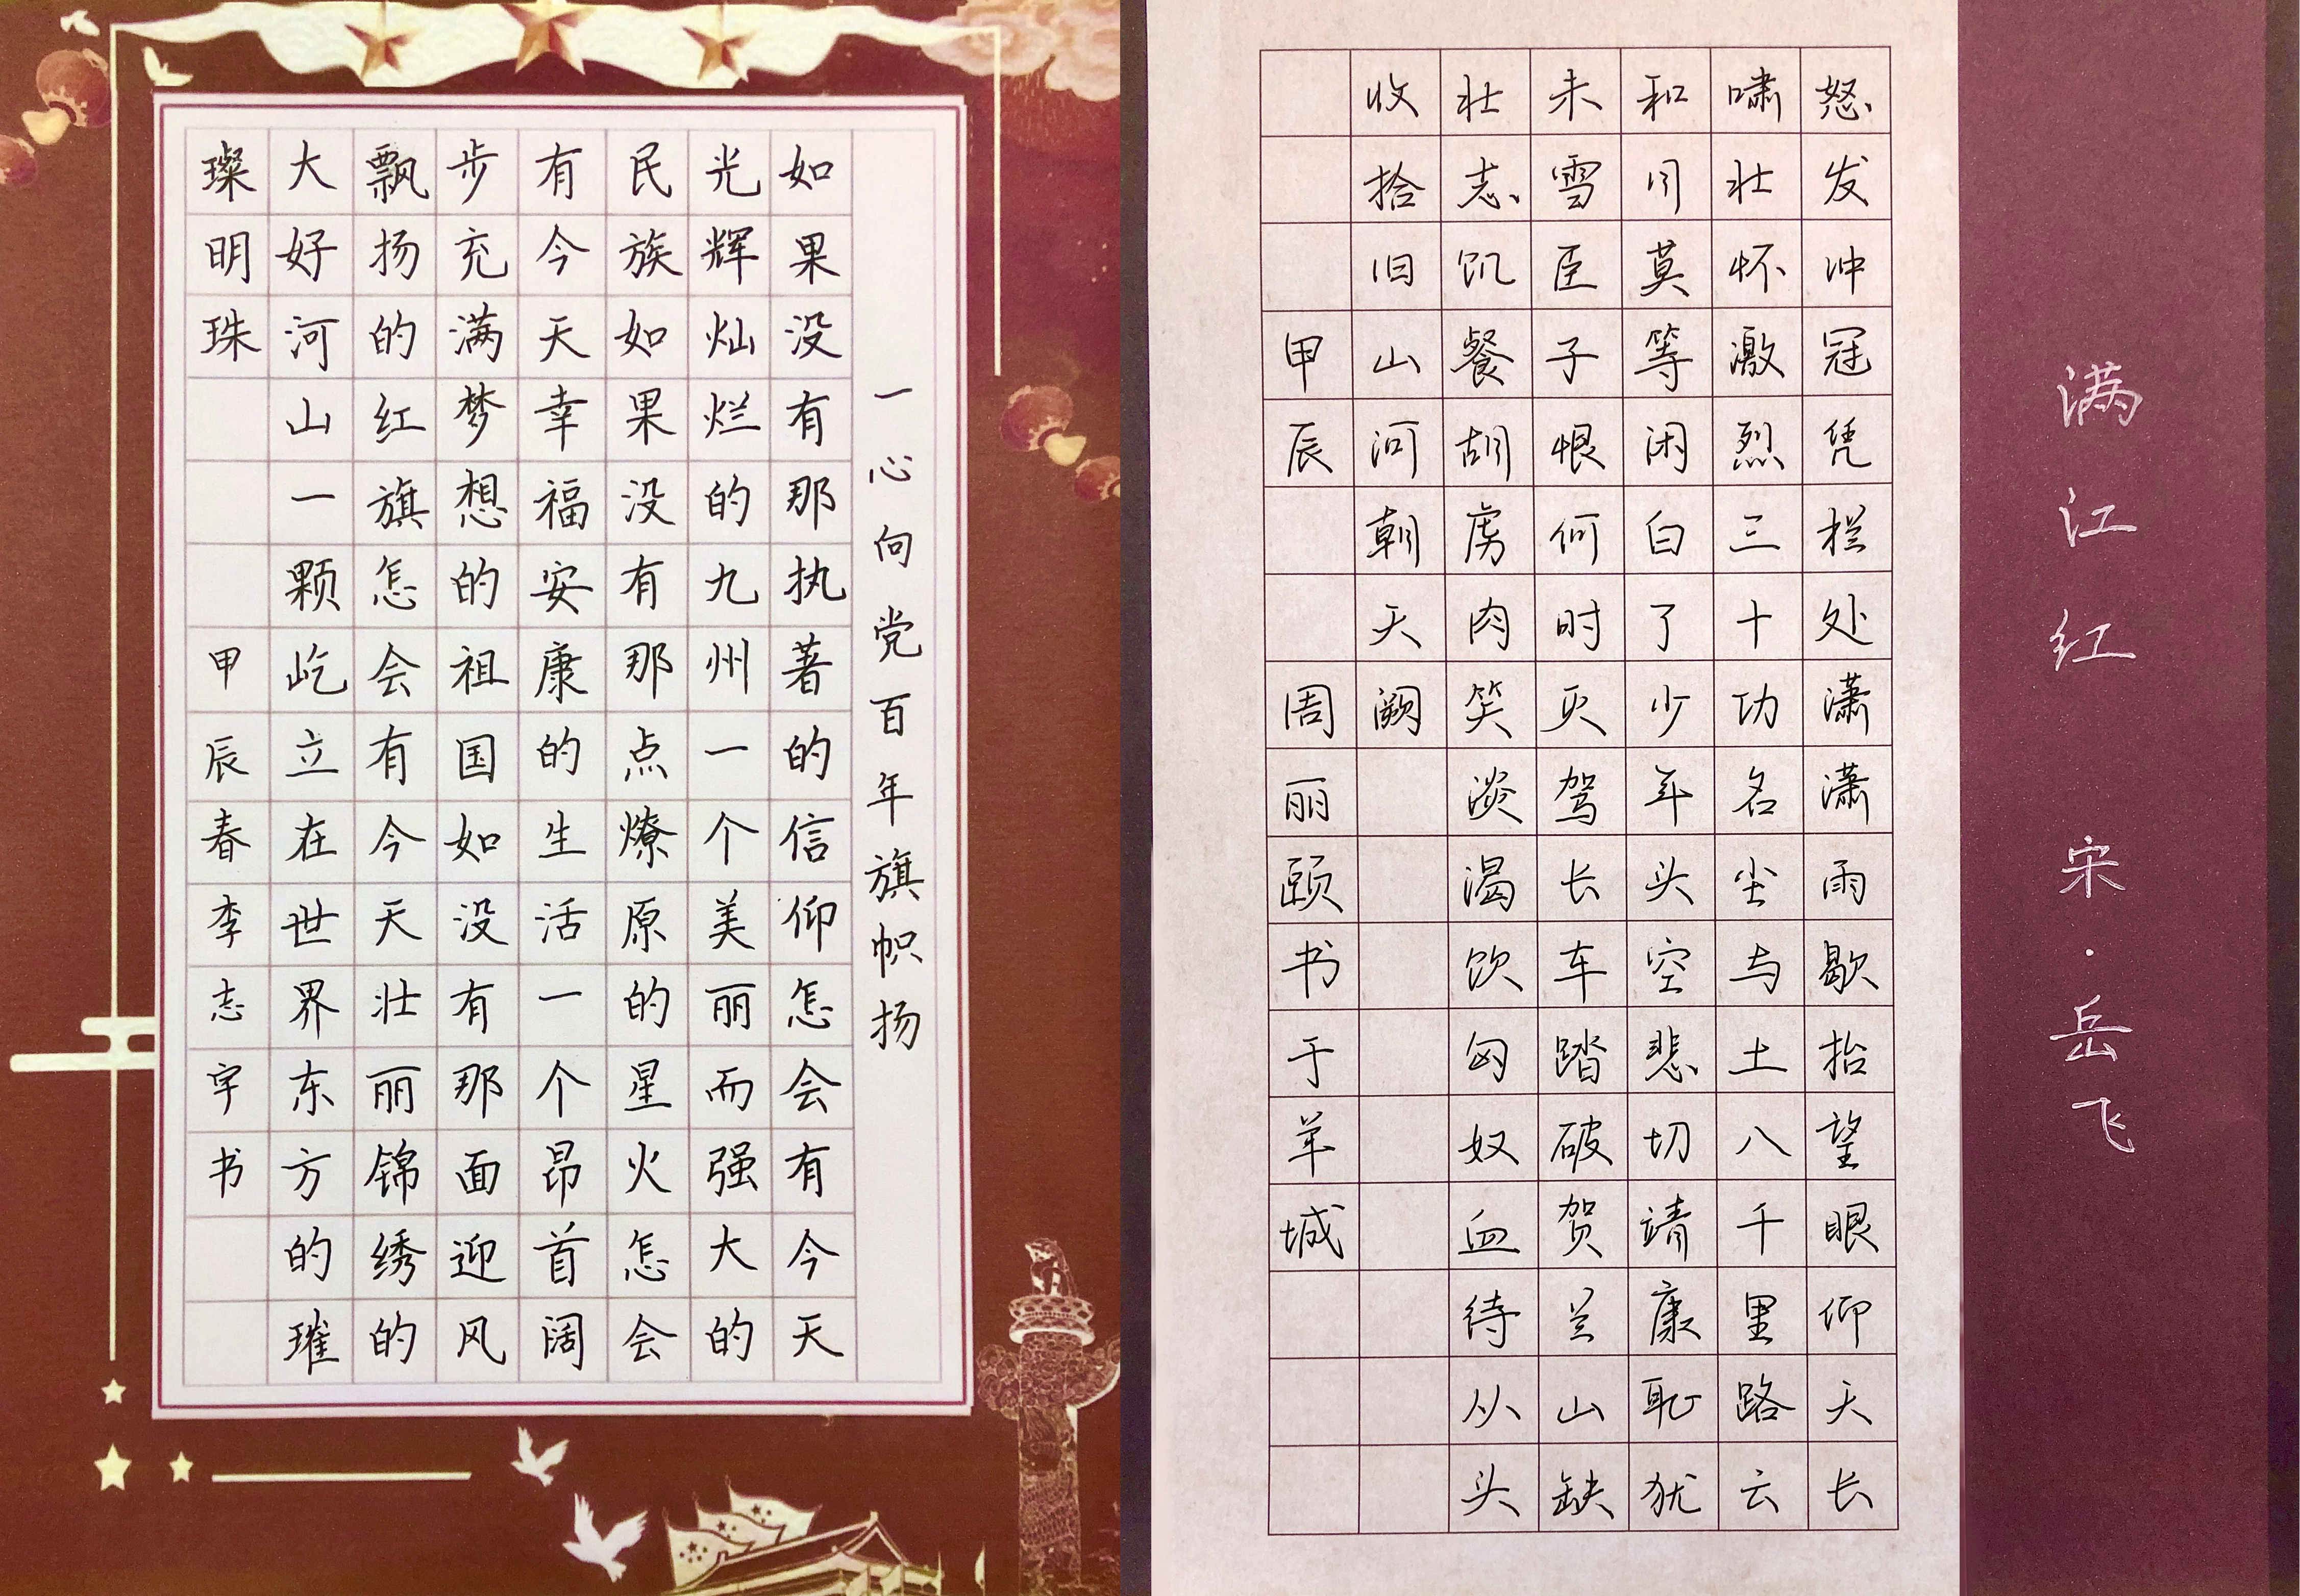 一心向党百年旗帜扬
如果没有那执著的信仰怎会有今天
光辉灿烂的九州一个美丽而强大的
民族如果没有那点燎原的星火怎会
有今天幸福安康的生活一个昂首阔
步充满梦想的祖国如没有那面迎风
飘扬的红旗怎会有今天壮丽锦绣的
大好河山一颗屹立在世界东方的璀
璨明珠 甲辰春李志宇书
满江红 宋·岳飞
怒发冲冠凭栏处潇潇雨歇抬望眼仰天长
啸壮怀激烈三十功名尘与土八千里路云
和月莫等闲白了少年头空悲切靖康耻犹
未雪臣子恨何时灭驾长车踏破贺兰山缺
壮志饥餐胡虏肉笑谈渴饮匈奴血待从头
收拾旧山河朝天阙
甲辰 周丽颐书于羊城